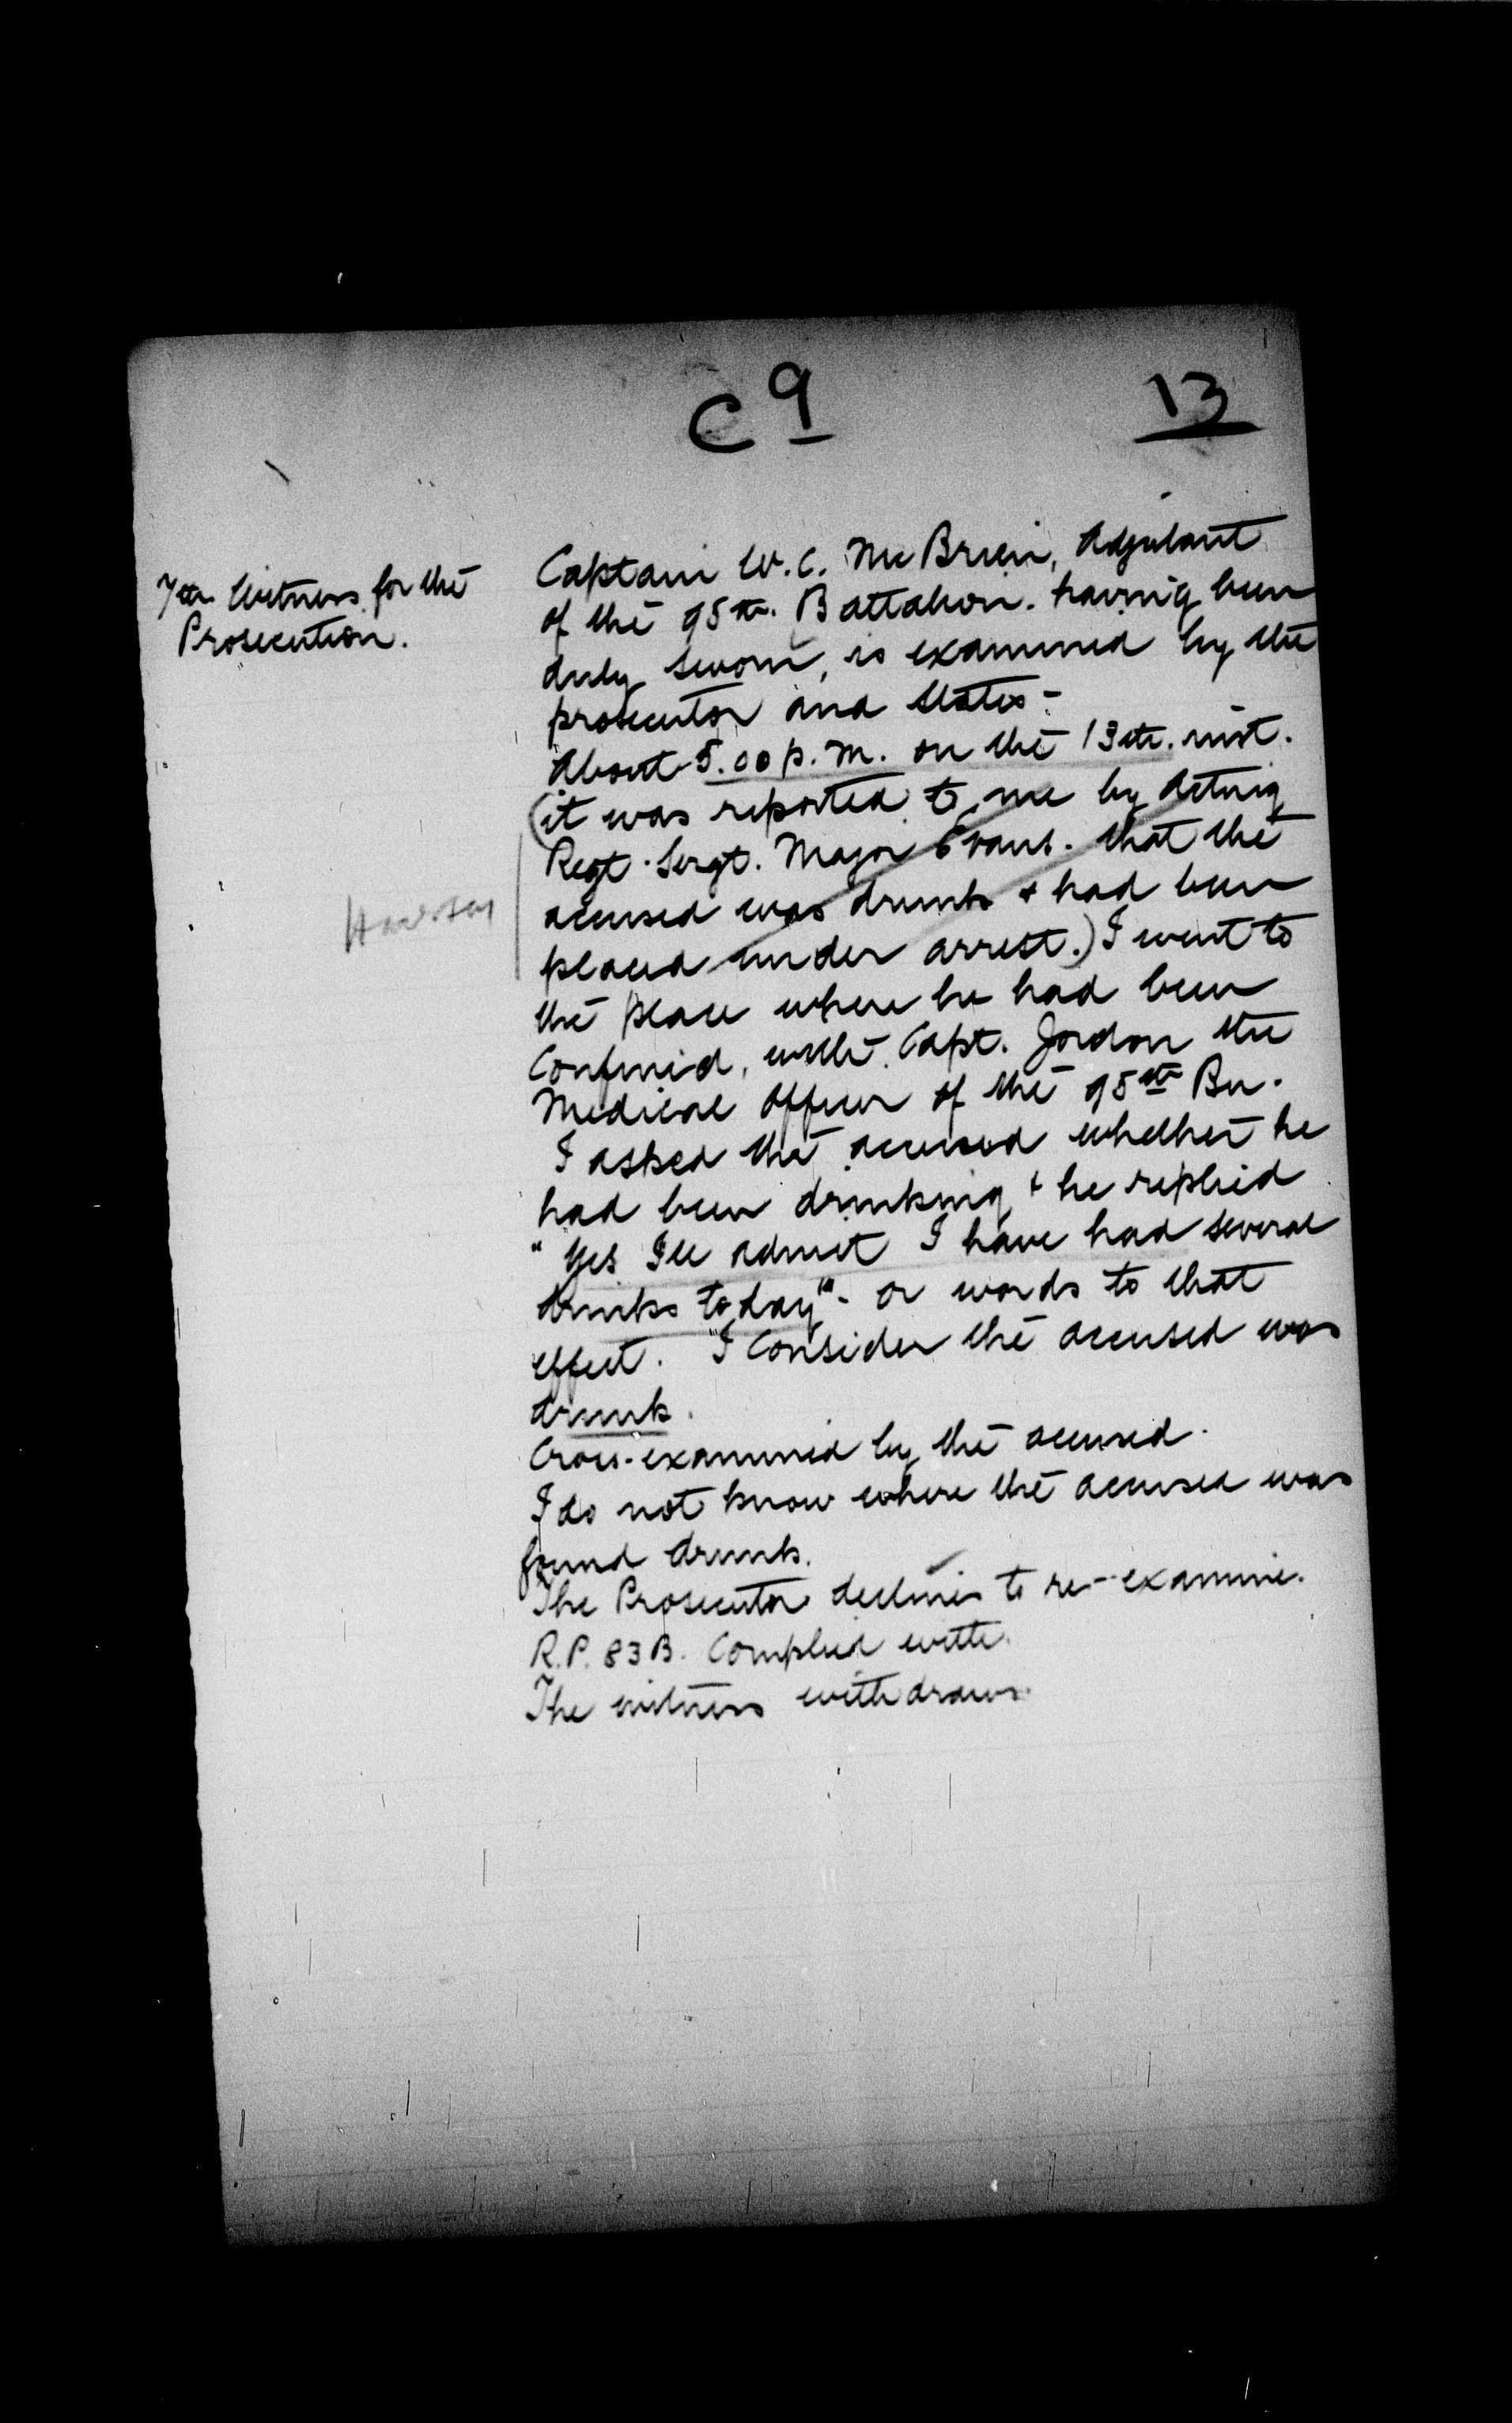 C 9
13
7th Witness for the
Prosecution.
Captain W.C. McBrien, Adjutant
of the 95th. Battalion. having been
duly sworn, is examined by the
prosecutor and states -
About 5.00 p.m. on the 13th. inst.
(it was reported to me by Acting
Regt. Sergt. Major Evans. that the
accused was drunk & had been
placed under arrest.) I went to
the place where he had been
Confined, with Capt. Jordon the
Medical Officer of the 95th Bn.
I asked the accused whether he
had been drinking & he replied
"Yes I'll admit I have had several
drinks today" - or words to that
effect. I Consider the accused was
drunk.
Cross-examined by the accused.
I do not know where the accused was
found drunk.
The Prosecutor declines to re-examine.
R.P. 83 B. Complied with.
The witness withdraws.
Hearsay